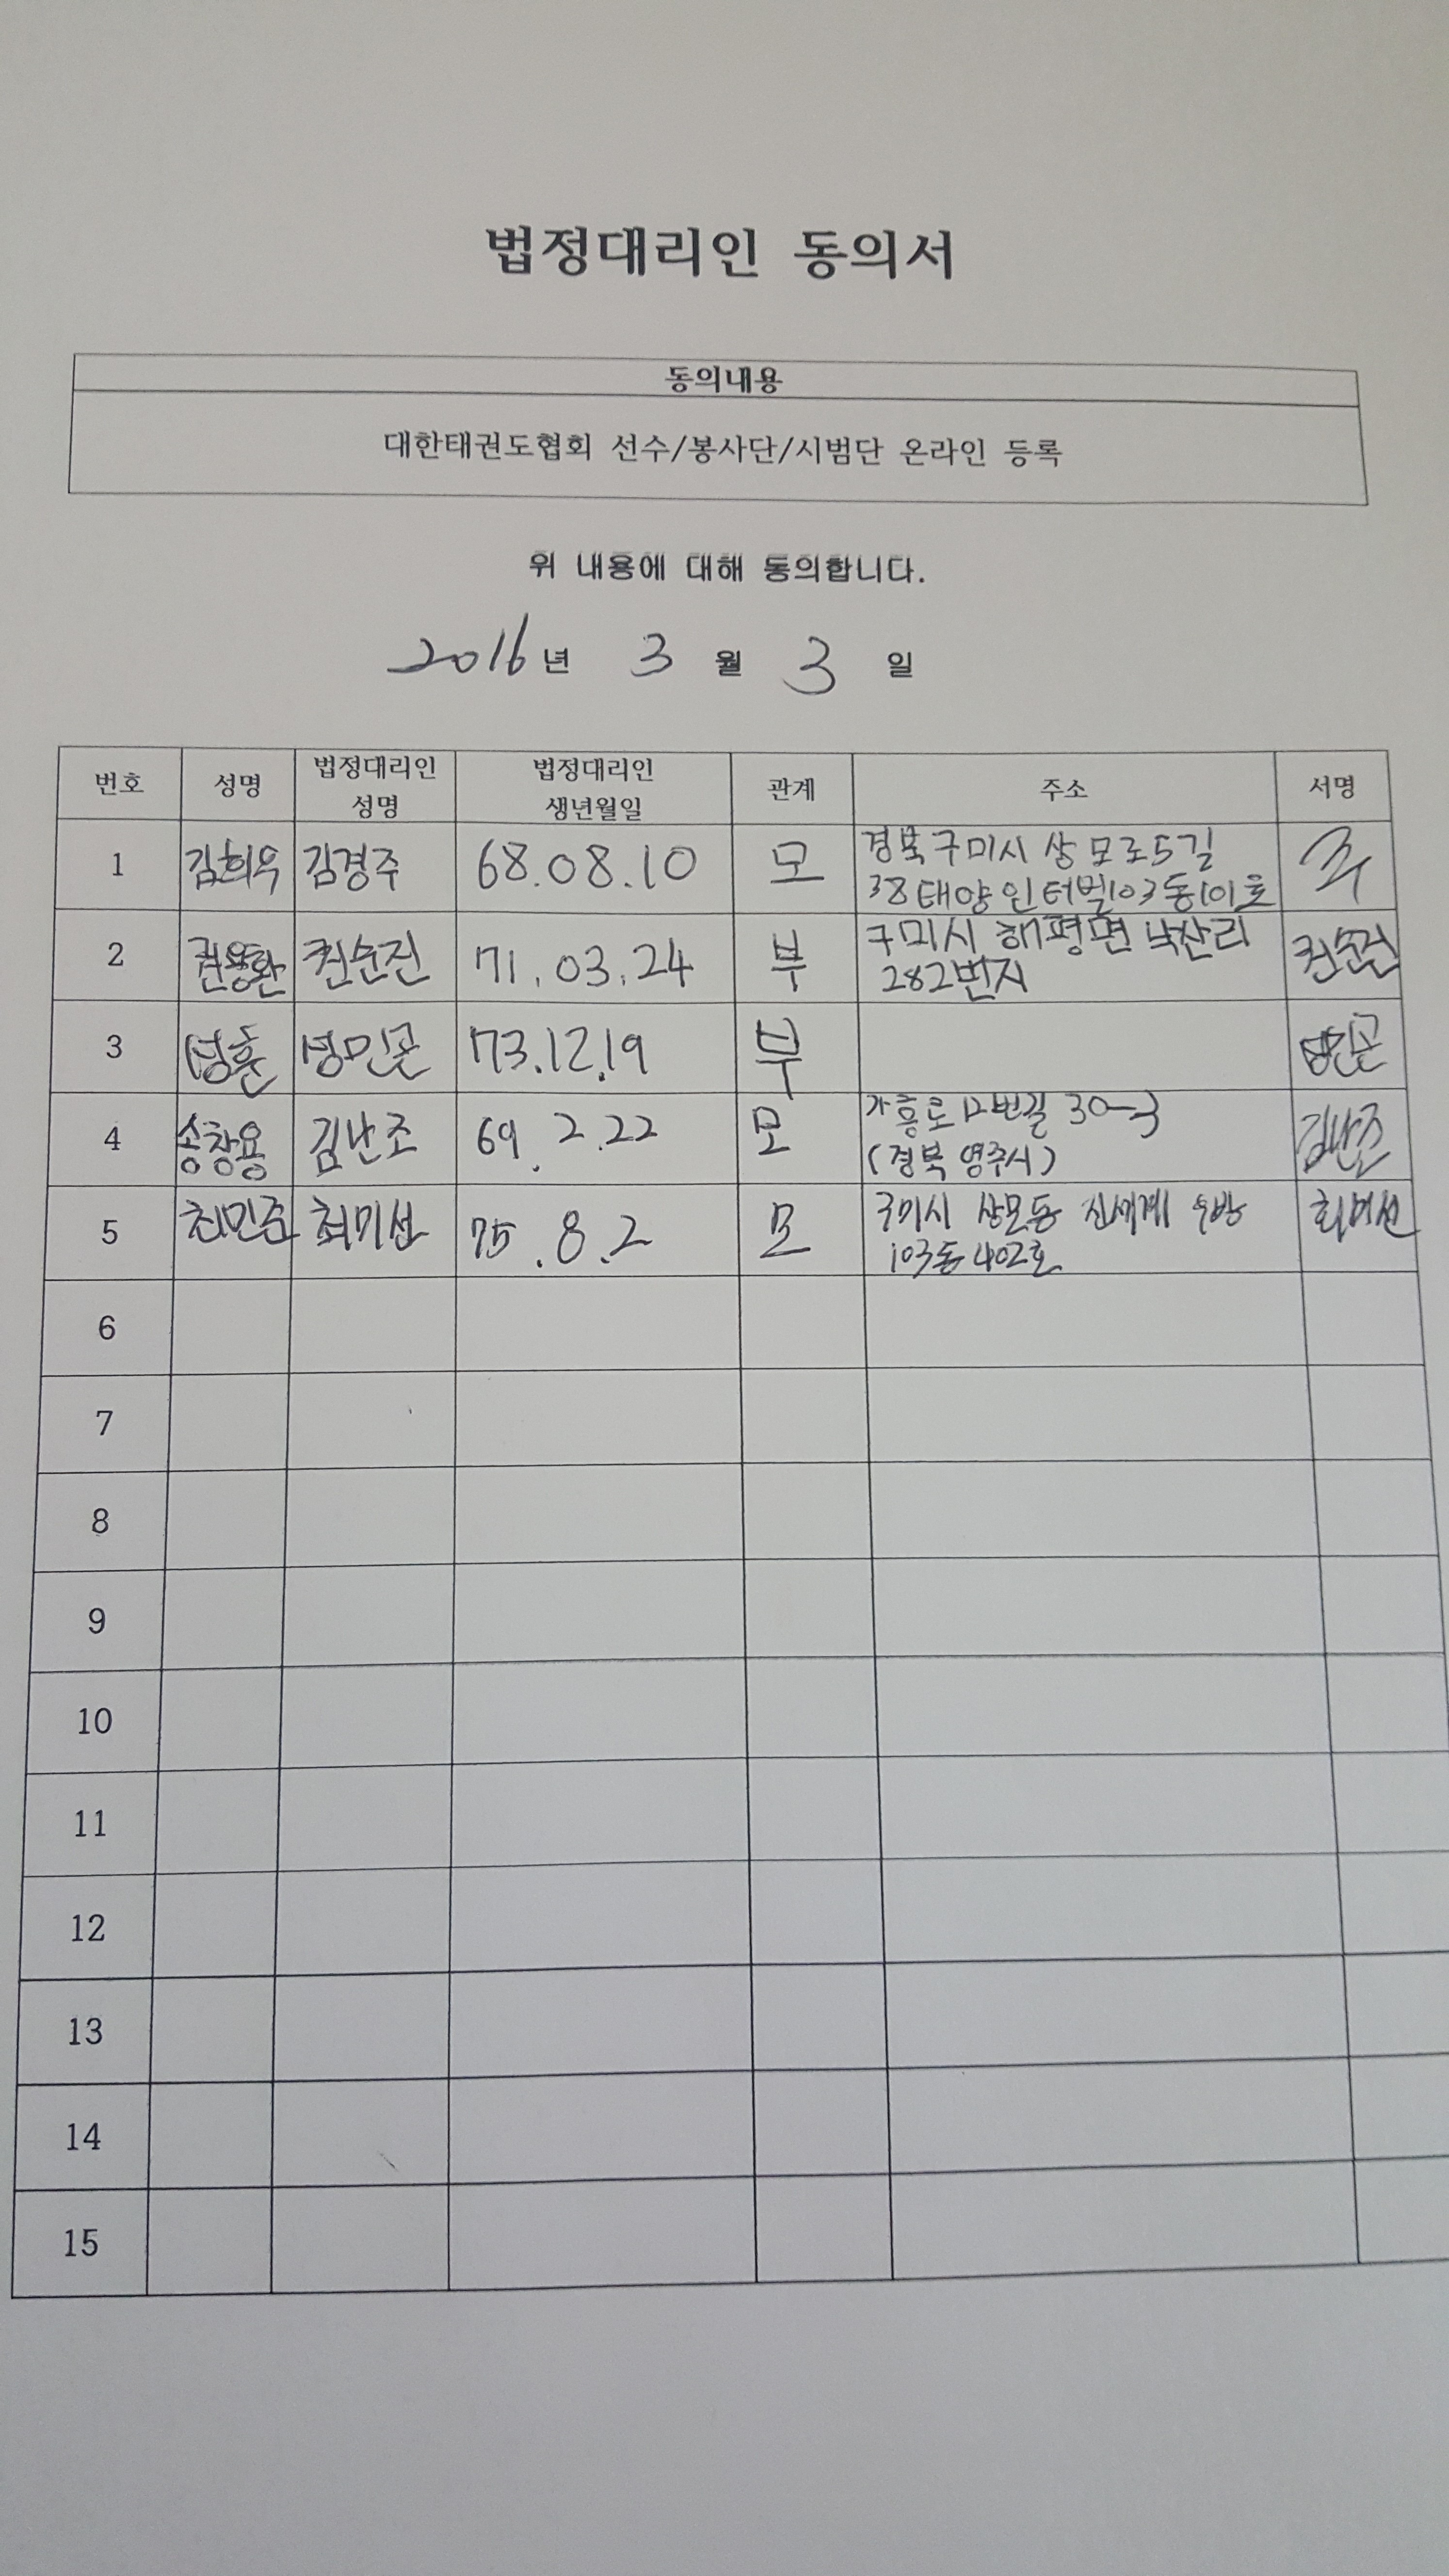 법정대리인 동의서
동의내용
대한태권도협회 선수/봉사단/시범단 온라인 등록
위 내용에 대해 동의합니다.
2016년 3 월 3 일
번호 성명 법정대리인 성명 법정대리인 생년월일 관계 주소 서명
1 김희우 김경주 68.08.10 모 경북 구미시 상모로5길
38 태양인터빌 103동 101호
2 권용환 권순진 71.03.24 부 구미시 해평면 낙산리 권순진
282번지
3 73.12.19 부
4 송창용 김난조 69.2.22 모 가흥로 12번길 30-3 김난조
(경북 영주시)
5 최민준 최미선 75.8.2 모 구미시 상모동 신세계 우방 최미선
103동 402호
6
7
8
9
10
11
12
13
14
15